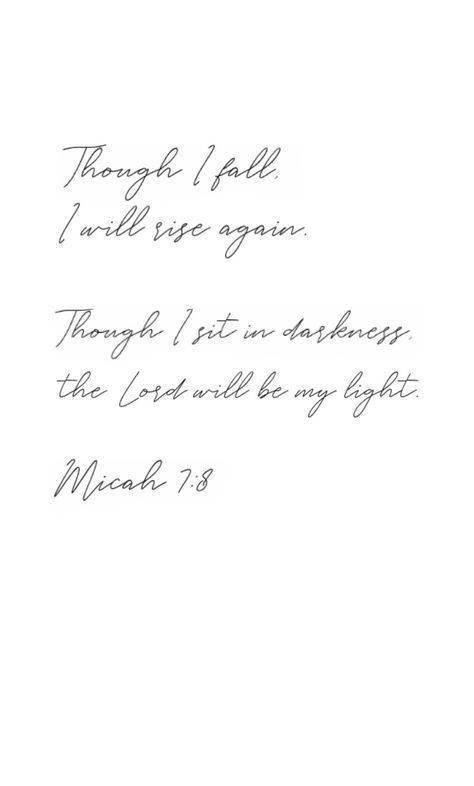 Though I fall,
I will rise again.
Though I sit in darkness,
the Lord will be my light.
Micah 7:8